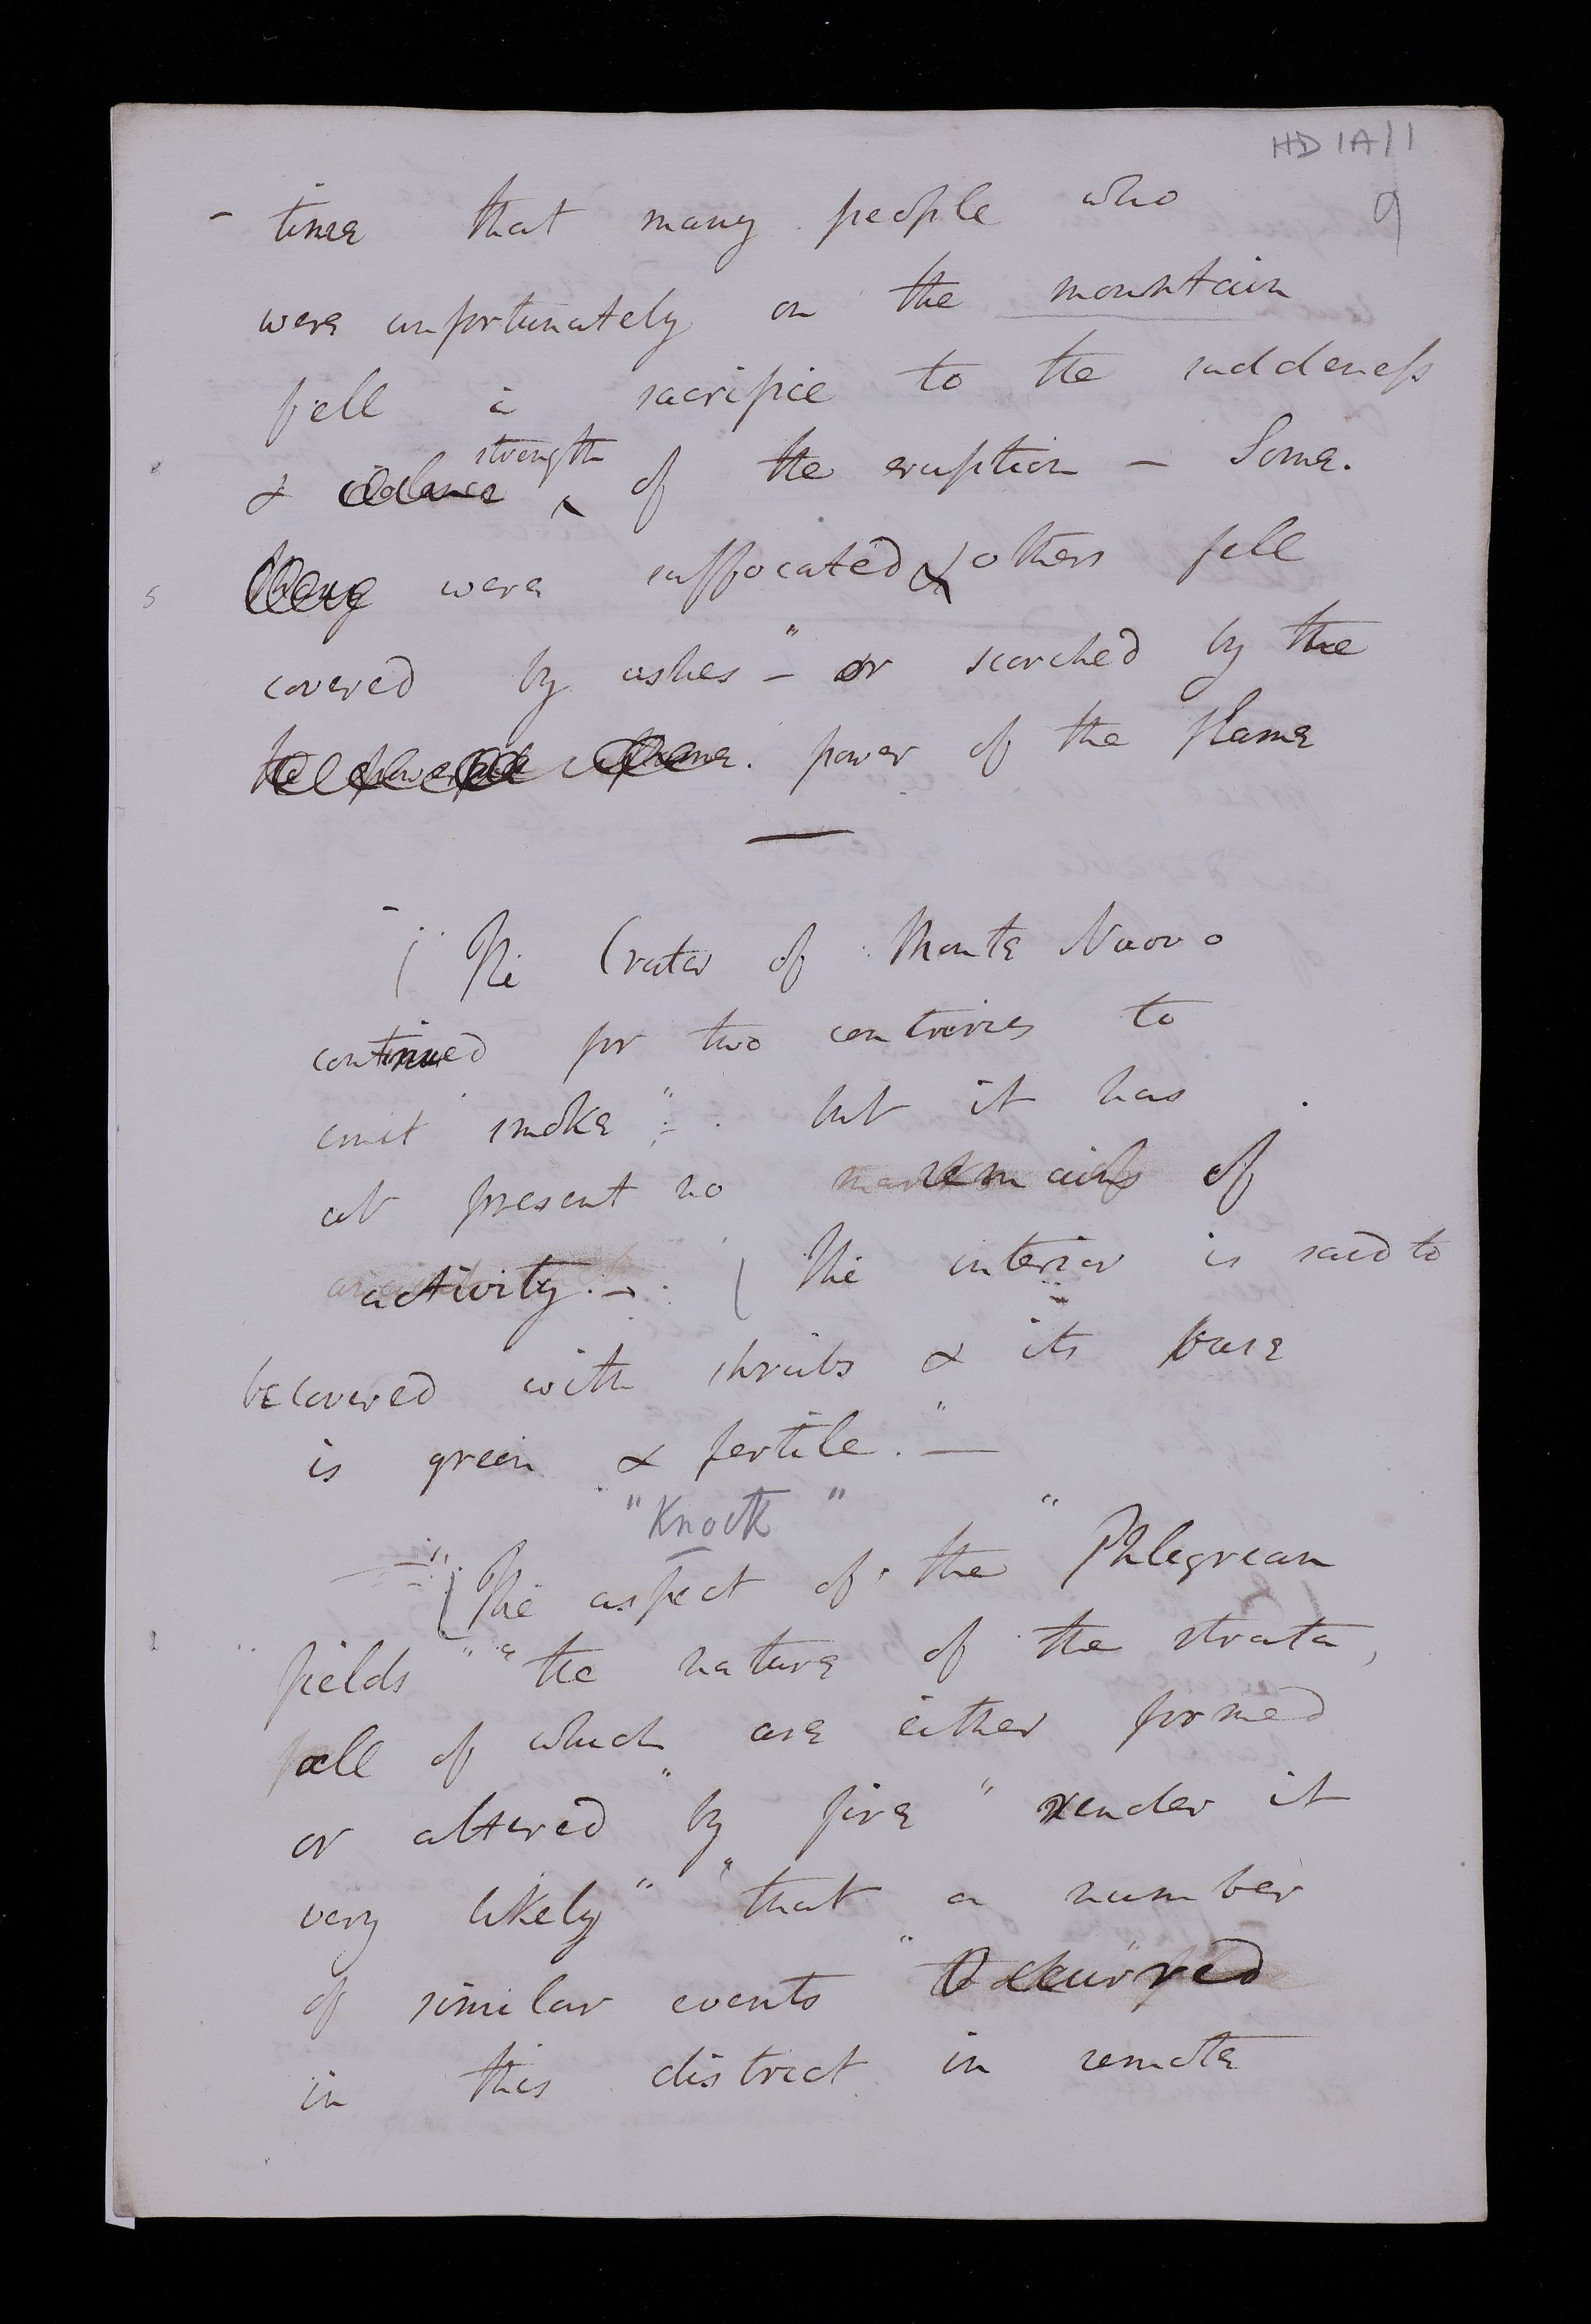 HD 1A/1
9
- time that many people who
were unfortunately on the mountain
fell a sacrifice to the suddeness
strength
& violence of the eruption – Some.
were suffocated & others fell
5
covered by ashes – " or scorched by the
the powerful flame. power of the flame
—
( The Crater of Monte Nuovo
continued for two centuries to
emit smoke "; but it has
at present no remains of
activity. – ( The interior is said to
be covered with shrubs & its base
is green & fertile." —
"Knock"
–" ( The aspect of the "Phlegrean
fields" "the nature of the strata,
all of which are either formed
or altered "by fire" render it
very likely" "that a number
of similar events "occurred
in this district in remote